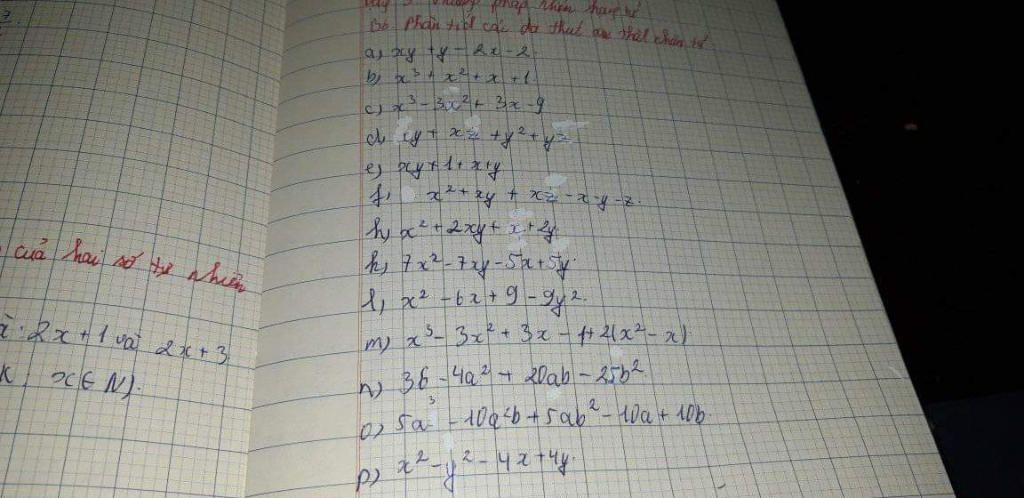 phương pháp nhóm hạng tử
Phân tích các đa thức
a) xy + y - 2x - 2
b) x³ + x² + x + 1
c) x³ - 3x² + 3x - 9
d) xy + xz + y² + yz
e) xy + 1 + x + y
f) x² + xy + xz - x - y - z
h) x² + 2xy + x + 2y
k) 7x² - 7xy - 5x + 5y
l) x² - 6x + 9 - 9y²
m) x³ - 3x² + 3x - 1 + 2(x² - x)
n) 36 - 4a² + 20ab - 25b²
o) 5a³ - 10a²b + 5ab² - 10a + 10b
p) x² - y² - 4x + 4y
của hai số tự nhiên
2x + 1 và 2x + 3
x ∈ N)